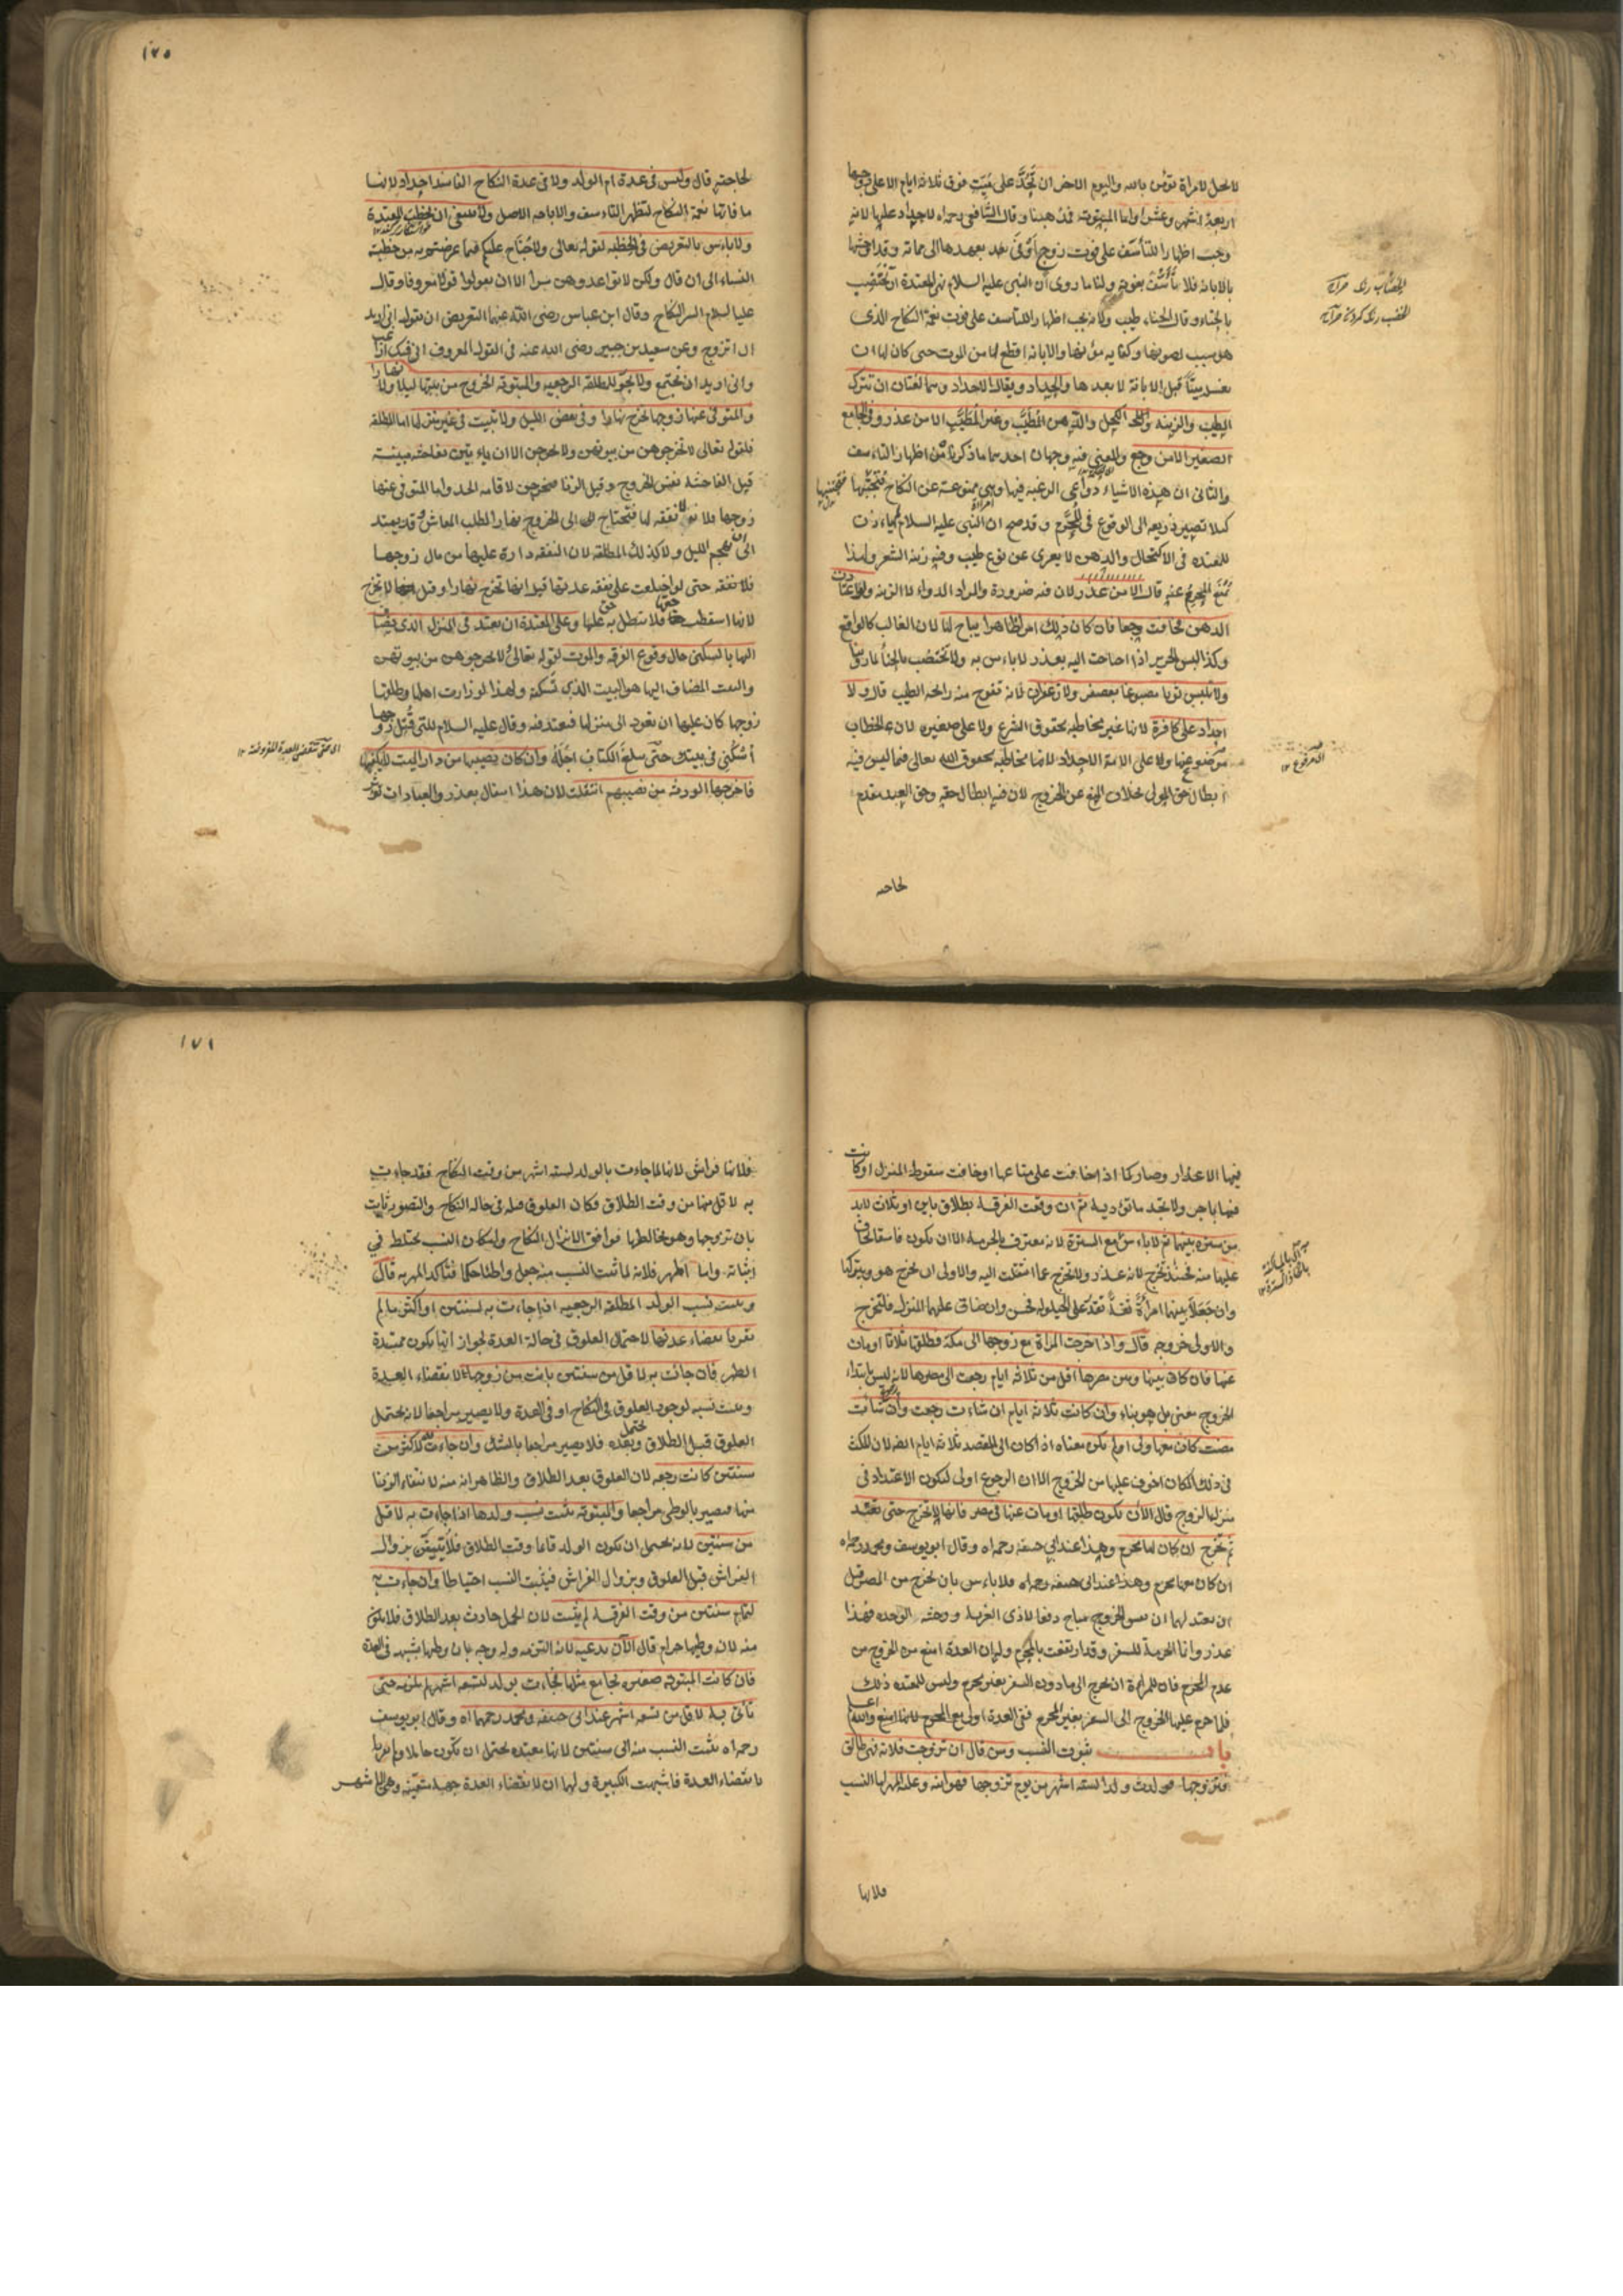 لا يحل لامراة تؤمن بالله واليوم الاخر ان تَحِدَّ على مَيّتٍ فوق ثلاثة ايام الا على زوجها
اربعة اشهر وعشرا واما المبتوتة فمذهبنا وقال الشافعى رحمه الله لا حداد عليها لانه
وجبت اظهارا للتأسف على فوت زوج وَفَى بعهدها الى مماته وقد اوحشها
بالابانة فلا تأسف بفوته ولنا ما روى ان النبى عليه السلام نهى المعتدة ان تختضب
بالحناء وقال الحناء طيب ولانه يجب اظهارا للتأسف على فوت نعمة النكاح الذى
هو سبب لصونها وكفاية مؤنها والابانة اقطع لها من الموت حتى كان لها ان
تغسله ميتا قبل الابانة لا بعدها والحداد ويقال الاحداد وهما لغتان ان تترك
الطيب والزينة والكحل والدهن المطيَّب وغير المطيَّب الا من عذر وفى الجامع
الصغير الا من وجع والمعنى فيه وجهان احدهما ما ذكرناه من اظهار التاسف
والثانى ان هذه الاشياء دواعى الرغبة فيها وهى ممنوعة عن النكاح فتجتنبها
كيلا تصير ذريعة الى الوقوع فى المحرم وقد صح ان النبى عليه السلام لم ياذن
للمعتدة فى الاكتحال والدهن لا يعرى عن نوع طيب وفيه زينة الشعر ولهذا
يُمنع المحرم عنه قال الا من عذر لان فيه ضرورة والمراد الدواء لا الزينة ولو اعتادت
الدهن فخافت وجعا فان كان ذلك امرا ظاهرا يباح لها لان الغالب كالواقع
وكذا لبس الحرير اذا احتاجت اليه بعذر لا باس به ولا تختضب بالحناء لما روينا
ولا تلبس ثوبا مصبوغا بعصفر ولا زعفران لانه تفوح منه رائحة الطيب قال ولا
احداد على كافرة لانها غير مخاطبة بحقوق الشرع ولا على صغيرة لان الخطاب
موضوع عنها وعلى الامة الاحداد لانها مخاطبة بحقوق الله تعالى فيما ليس فيه
ابطال حق المولى بخلاف المنع عن الخروج لان فيه ابطال حقه وحق العبد مقدم
لحاجته
لحاجته قال وليس فى عدة ام الولد ولا فى عدة النكاح الفاسد احداد لانها
ما فاتها نعمة النكاح لتظهر التاسف والاباحة الاصل ولا ينبغى ان تخطب المعتدة
ولا باس بالتعريض فى الخطبة لقوله تعالى ولا جناح عليكم فيما عرضتم به من خطبة
النساء الى ان قال ولكن لا تواعدوهن سرا الا ان تقولوا قولا معروفا وقال
عليه السلام السر النكاح وقال ابن عباس رضى الله عنهما التعريض ان يقول انى اريد
ان اتزوج وعن سعيد بن جبير رضى الله عنه فى القول المعروف انى فيك لراغب
وانى اريد ان نجتمع ولا يجوز للمطلقة الرجعية والمبتوتة الخروج من بيتها ليلا ولا نهارا
والمتوفى عنها زوجها تخرج نهارا وفى بعض الليل ولا تبيت فى غير منزلها اما المطلقة
فلقوله تعالى لا تخرجوهن من بيوتهن ولا يخرجن الا ان ياتين بفاحشة مبينة
قيل الفاحشة نفس الخروج وقيل الزنا فيخرجن لاقامة الحد واما المتوفى عنها
زوجها فلانه لا نفقة لها فتحتاج الى الخروج نهارا لطلب المعاش وقد يمتد
الى ان يهجم الليل ولا كذلك المطلقة لان النفقة دارة عليها من مال زوجها
فلا نفقة حتى لو اختلعت على نفقة عدتها قيل انها تخرج نهارا وقيل لا تخرج
لانها اسقطت حقها فلا يبطل به حق عليها وعلى المعتدة ان تعتد فى المنزل الذى يضاف
اليها بالسكنى حال وقوع الفرقة والموت لقوله تعالى لا تخرجوهن من بيوتهن
والبيت المضاف اليها هو البيت الذى تسكنه ولهذا لو زارت اهلها وطلقها
زوجها كان عليها ان تعود الى منزلها فتعتد فيه وقال عليه السلام للتى قتل زوجها
أسكنى فى بيتك حتى يبلغ الكتاب اجله وان كان نصيبها من دار الميت لا يكفيها
فاخرجها الورثة من نصيبهم انتقلت لان هذا انتقال بعذر والعبادات تؤثر
١٧٥
فيها الاعذار وصار كما اذا خافت على متاعها او خافت سقوط المنزل او كانت
فيها باجر ولا تجد ما تؤديه ثم ان وقعت الفرقة بطلاق باين او ثلاث لابد
من سترة بينهما ثم لا باس مع السترة لانه معترف بالحرمة الا ان يكون فاسقا يخاف
عليها منه فحينئذ تخرج لانه عذر ولا تخرج عما انتقلت اليه والاولى ان يخرج هو ويتركها
وان جعلا بينهما امرأة ثقة تقدر على الحيلولة فحسن وان ضاق عليهما المنزل فلتخرج
والاولى خروجه قال واذا خرجت المراة مع زوجها الى مكة فطلقها ثلاثا او مات
عنها فان كان بينها وبين مصرها اقل من ثلاثة ايام رجعت الى مصرها لانه ليس بابتداء
الخروج معنى بل هو بناء وان كانت ثلاثة ايام ان شاءت رجعت وان شاءت
مضت كان معها ولى او لم يكن معناه اذا كان الى المقصد ثلاثة ايام ايضا لان المكث
فى ذلك المكان اخوف عليها من الخروج الا ان الرجوع اولى ليكون الاعتداد فى
منزل الزوج قال الا ان يكون طلقها او مات عنها فى مصر فانها لا تخرج حتى تعتد
ثم تخرج ان كان لها محرم وهذا عند ابى حنيفة رحمه الله وقال ابو يوسف ومحمد رحمهما الله
ان كان معها محرم وهذا عند ابى حنيفة رحمه الله فلا باس بان تخرج من المصر قبل
ان تعتد لهما ان نفس الخروج مباح دفعا لاذى الغربة ووحشة الوحدة فهذا
عذر وانما الحرمة للسفر وقد ارتفعت بالمحرم وله ان العدة امنع من الخروج من
عدم المحرم فان للمراة ان تخرج الى ما دون السفر بغير محرم وليس للمعتدة ذلك
فلما حرم عليها الخروج الى السفر بغير المحرم ففى العدة اولى
باب ثبوت النسب ومن قال ان تزوجت فلانة فهى طالق
فتزوجها فولدت ولدا لستة اشهر من يوم تزوجها فهو ابنه وعليه المهر اما النسب
فلانها
فلانها فراش لانها لما جاءت بالولد لستة اشهر من وقت النكاح فقد جاءت
به لاقل منها من وقت الطلاق فكان العلوق قبله فى حالة النكاح والتصور ثابت
بان تزوجها وهو يخالطها فوافق الانزال النكاح والنسب يحتاط فى
اثباته واما المهر فلانه لما ثبت النسب منه جعل واطئا حكما فتأكد المهر به قال
ويثبت نسب الولد المطلقة الرجعية اذا جاءت به لسنتين او اكثر ما لم
تقر بانقضاء عدتها لاحتمال العلوق فى حالة العدة لجواز انها تكون ممتدة
الطهر فان جائت به لاقل من سنتين بانت من زوجها لانقضاء العدة
ويثبت نسبه لوجود العلوق فى النكاح او فى العدة ولا يصير مراجعا لانه يحتمل
العلوق قبل الطلاق ويحتمل بعده فلا يصير مراجعا بالشك وان جاءت به لاكثر من
سنتين كانت رجعة لان العلوق بعد الطلاق والظاهر انه منه لانتفاء الزنا
منها فيصير بالوطى مراجعا والمبتوتة يثبت نسب ولدها اذا جاءت به لاقل
من سنتين لانه يحتمل ان يكون الولد قائما وقت الطلاق فلا يتيقن بزوال
الفراش قبل العلوق فيثبت النسب احتياطا وان جاءت به
لتمام سنتين من وقت الفرقة لم يثبت لان الحمل حادث بعد الطلاق فلا يكون
منه لان وطيها حرام قال الا ان يدعيه لانه التزمه وله وجه بان وطيها بشبهة فى العدة
فان كانت المبتوتة صغيرة يجامع مثلها فجاءت بولد لتسعة اشهر لم يلزمه حتى
تاتى به لاقل من تسعة اشهر عند ابى حنيفة ومحمد رحمهما الله وقال ابو يوسف
رحمه الله يثبت النسب منه الى سنتين لانها معتدة يحتمل ان تكون حاملا ولم تقر
بانقضاء العدة فاشبهت الكبيرة ولهما ان لانقضاء العدة جهة متعينة وهو الاشهر
١٧٦